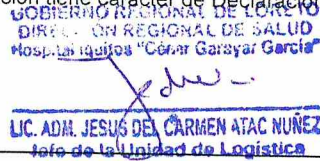 ción tiene carácter de Declaración
GOBIERNO REGIONAL DE LORETO
DIRECCION REGIONAL DE SALUD
Hospital Iquitos "César Garayar García"
LIC. ADM. JESUS DEL CARMEN ATAC NUÑEZ
Jefe de la Unidad de Logística